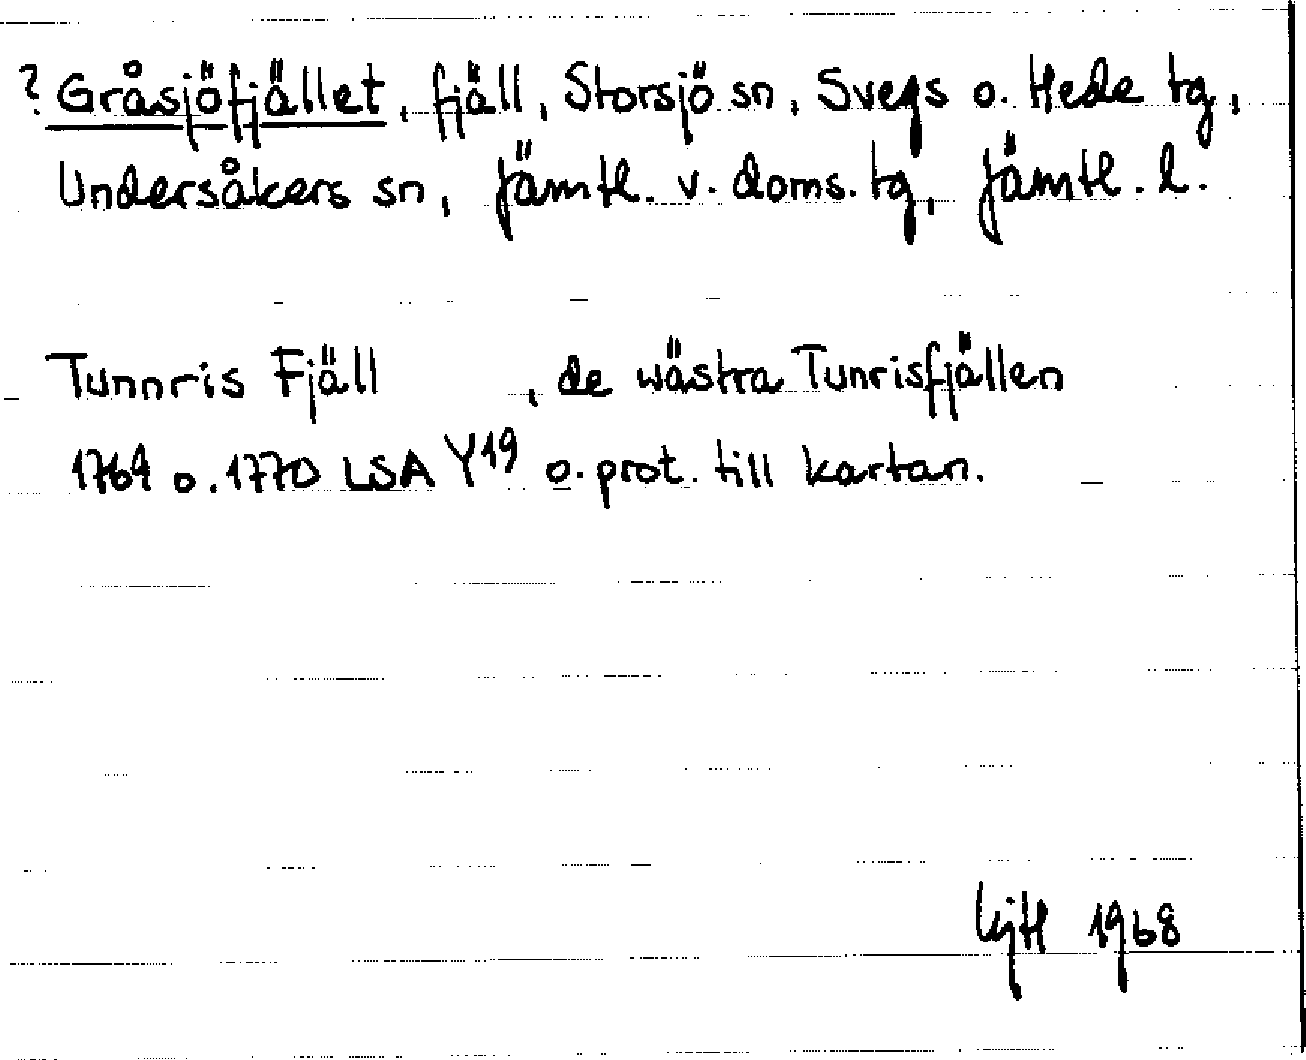 ? Gråsjöfjället, fjäll, Storsjö sn, Svegs o. Hede tg,
Undersåkers sn, Jämtl. v. doms. tg, Jämtl. l.
Tunnris Fjäll , de wästra Tunrisfjällen
1769 o. 1770 LSA Y19 o. prot. till kartan.
1968